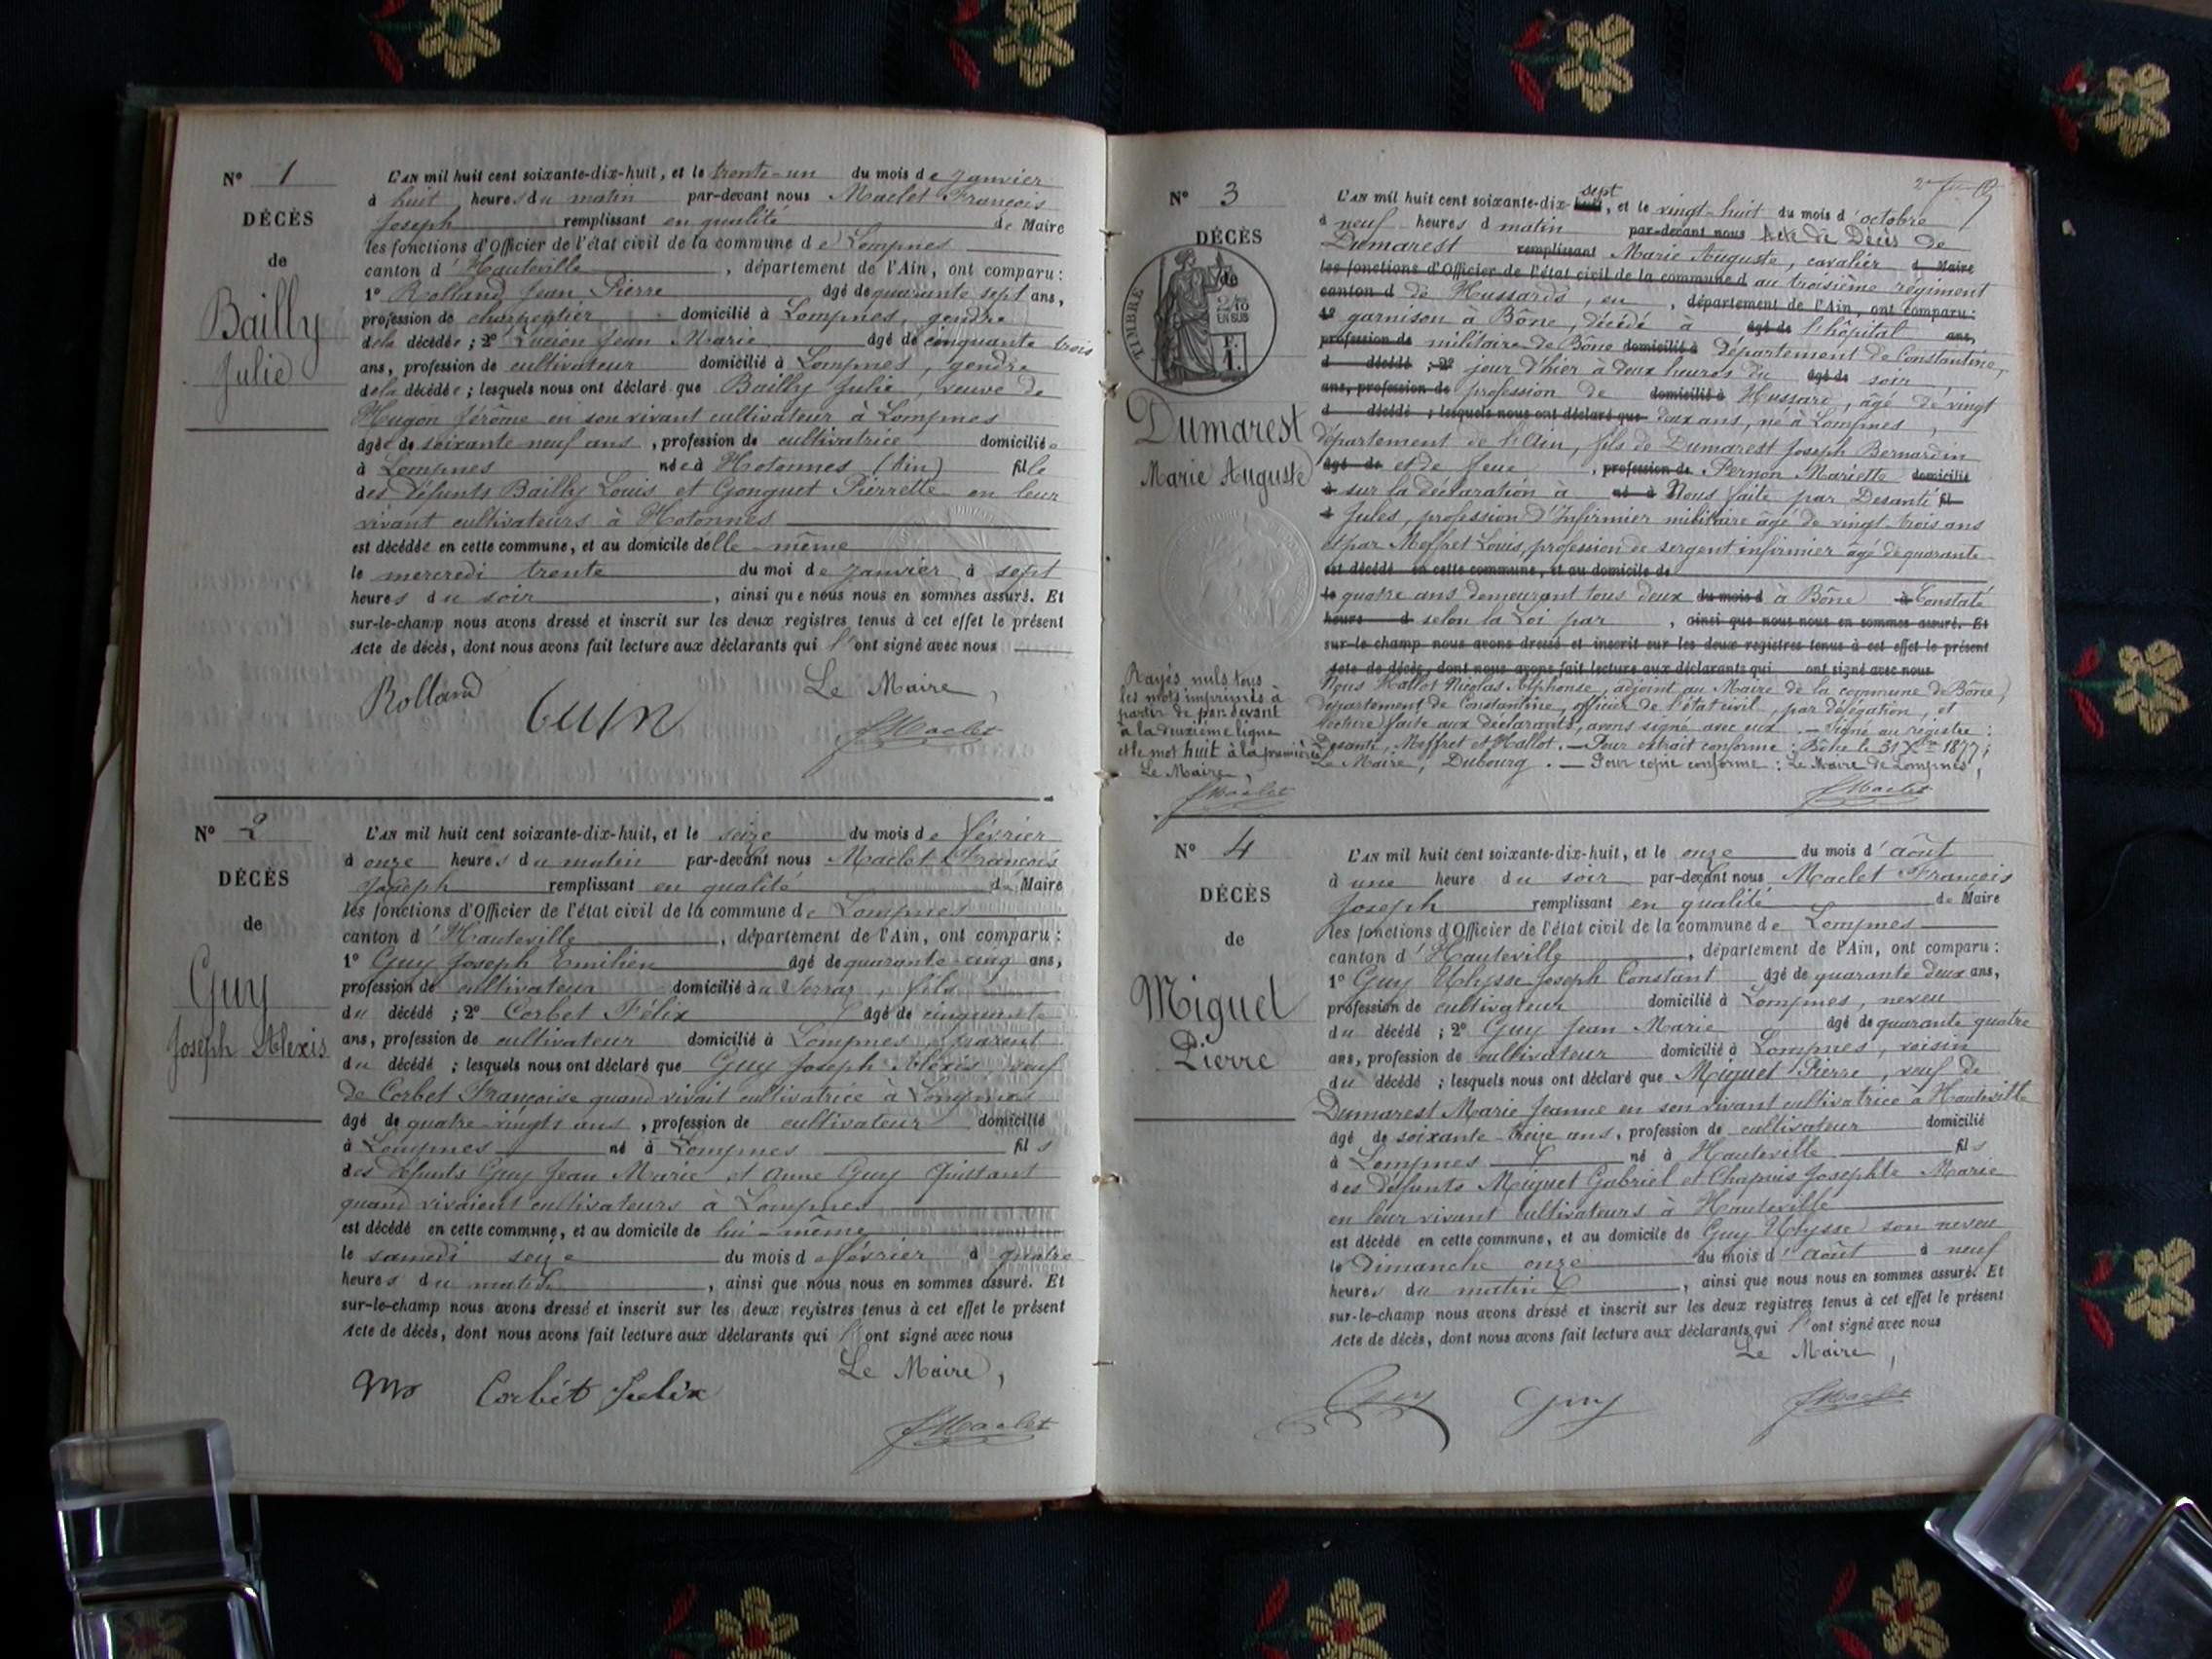 N° 1
DÉCÈS
de
Bailly
Julie
L'AN mil huit cent soixante-dix-huit, et le trente-un du mois de Janvier
à huit heures du matin par-devant nous Maclet François
Joseph remplissant en qualité de Maire
les fonctions d'Officier de l'état civil de la commune de Lompnes
canton d'Hauteville, département de l'Ain, ont comparu:
1° Rolland Jean Pierre âgé de quarante sept ans,
profession de charpentier domicilié à Lompnes, gendre
de la décédée; 2° Lucien Jean Marie âgé de cinquante trois
ans, profession de cultivateur domicilié à Lompnes, gendre
de la décédée; lesquels nous ont déclaré que Bailly Julie, veuve de
Hugon Jérôme en son vivant cultivateur à Lompnes
âgée de soixante neuf ans, profession de cultivatrice domiciliée
à Lompnes née à Hotonnes (Ain) fille
des défunts Bailly Louis et Gonguet Pierrette en leur
vivant cultivateurs à Hotonnes
est décédée en cette commune, et au domicile delle-même
le mercredi trente du moi de Janvier à sept
heures du soir, ainsi que nous nous en sommes assuré. Et
sur-le-champ nous avons dressé et inscrit sur les deux registres tenus à cet effet le présent
Acte de décès, dont nous avons fait lecture aux déclarants qui l'ont signé avec nous
Le Maire,
Rolland
FMaclet
N° 2
DÉCÈS
de
Guy
Joseph Alexis
L'AN mil huit cent soixante-dix-huit, et le seize du mois de février
à onze heures du matin par-devant nous Maclet François
Joseph remplissant en qualité de Maire
les fonctions d'Officier de l'état civil de la commune de Lompnes
canton d'Hauteville, département de l'Ain, ont comparu:
1° Guy Joseph Emilien âgé de quarante-cinq ans,
profession de cultivateur domicilié à, fils
du décédé; 2° Corbet Félix âgé de cinquante
ans, profession de cultivateur domicilié à Lompnes parent
du décédé; lesquels nous ont déclaré que Guy Joseph Alexis, veuf
de Corbet Françoise quand vivait cultivatrice à Lompnes
âgé de quatre-vingts ans, profession de cultivateur domicilié
à Lompnes né à Lompnes fils
des défunts Guy Jean Marie et Anne Guy Quistant
quand vivaient cultivateurs à Lompnes
est décédé en cette commune, et au domicile de lui-même
le samedi seize du mois de février à quatre
heures du matin, ainsi que nous nous en sommes assuré. Et
sur-le-champ nous avons dressé et inscrit sur les deux registres tenus à cet effet le présent
Acte de décès, dont nous avons fait lecture aux déclarants qui l'ont signé avec nous
Le Maire,
Corbet Felix
FMaclet
N° 3
DÉCÈS
de
TIMBRE
Dumarest
Marie Auguste
Rayés nuls tous
les mots imprimés à
partir de par-devant
à la deuxième ligne
et le mot huit à la première
Le Maire,
FMaclet
L'AN mil huit cent soixante-dix-huit sept, et le vingt-huit du mois d'octobre
à neuf heures d matin par-devant nous Acte de Décès de
Dumarest remplissant Marie Auguste, cavalier d Maire
les fonctions d'Officier de l'état civil de la commune d au troisième régiment
canton d de Hussards, en, département de l'Ain, ont comparu:
1° garnison à Bône, décédé à âgé de l'hôpital ans,
profession de militaire de Bône domicilié à département de Constantine,
d décédé; 2° jour d'hier à deux heures du âgé de soir,
ans, profession de profession de domicilié à Hussard, âgé de vingt
d décédé; lesquels nous ont déclaré que deux ans, né à Lompnes,
département de l'Ain, fils de Dumarest Joseph Bernardin
âgé de et de feue, profession de Pernon Mariette domicilié
à sur la déclaration à né à Nous faite par Desanti fil
d Jules, profession d'Infirmier militaire âgé de vingt trois ans
et par Meffret Louis, profession de sergent infirmier âgé de quarante
est décédé en cette commune, et au domicile de
le quatre ans demeurant tous deux du mois d à Bône à Constaté
heure d selon la Loi par, ainsi que nous nous en sommes assuré. Et
sur-le-champ nous avons dressé et inscrit sur les deux registres tenus à cet effet le présent
Acte de décès, dont nous avons fait lecture aux déclarants qui ont signé avec nous
Nous Hallot Nicolas Alphonse, adjoint au Maire de la commune de Bône,
département de Constantine, officier de l'état civil, par délégation, et
lecture faite aux déclarants, avons signé avec eux. — Signé au registre:
Desanti, Meffret et Hallot. — Pour extrait conforme: Bône le 31 Xbre 1877;
Le Maire, Dubourg. — Pour copie conforme: Le Maire de Lompnes,
FMaclet
N° 4
DÉCÈS
de
Miguel
Pierre
L'AN mil huit cent soixante-dix-huit, et le onze du mois d'août
à une heure du soir par-devant nous Maclet François
Joseph remplissant en qualité de Maire
les fonctions d'Officier de l'état civil de la commune de Lompnes
canton d'Hauteville, département de l'Ain, ont comparu:
1° Guy Ulysse Joseph Constant âgé de quarante deux ans,
profession de cultivateur domicilié à Lompnes, neveu
du décédé; 2° Guy Jean Marie âgé de quarante quatre
ans, profession de cultivateur domicilié à Lompnes, voisin
du décédé; lesquels nous ont déclaré que Miguet Pierre, veuf de
Dumarest Marie Jeanne en son vivant cultivatrice à Hauteville
âgé de soixante-treize ans, profession de cultivateur domicilié
à Lompnes né à Hauteville fils
des défunts Miguet Gabriel et Chapuis Josephte Marie
en leur vivant cultivateurs à Hauteville
est décédé en cette commune, et au domicile de Guy Ulysse son neveu
le Dimanche onze du mois d'août à neuf
heures du matin, ainsi que nous nous en sommes assuré. Et
sur-le-champ nous avons dressé et inscrit sur les deux registres tenus à cet effet le présent
Acte de décès, dont nous avons fait lecture aux déclarants qui l'ont signé avec nous
Le Maire,
Guy Guy FMaclet